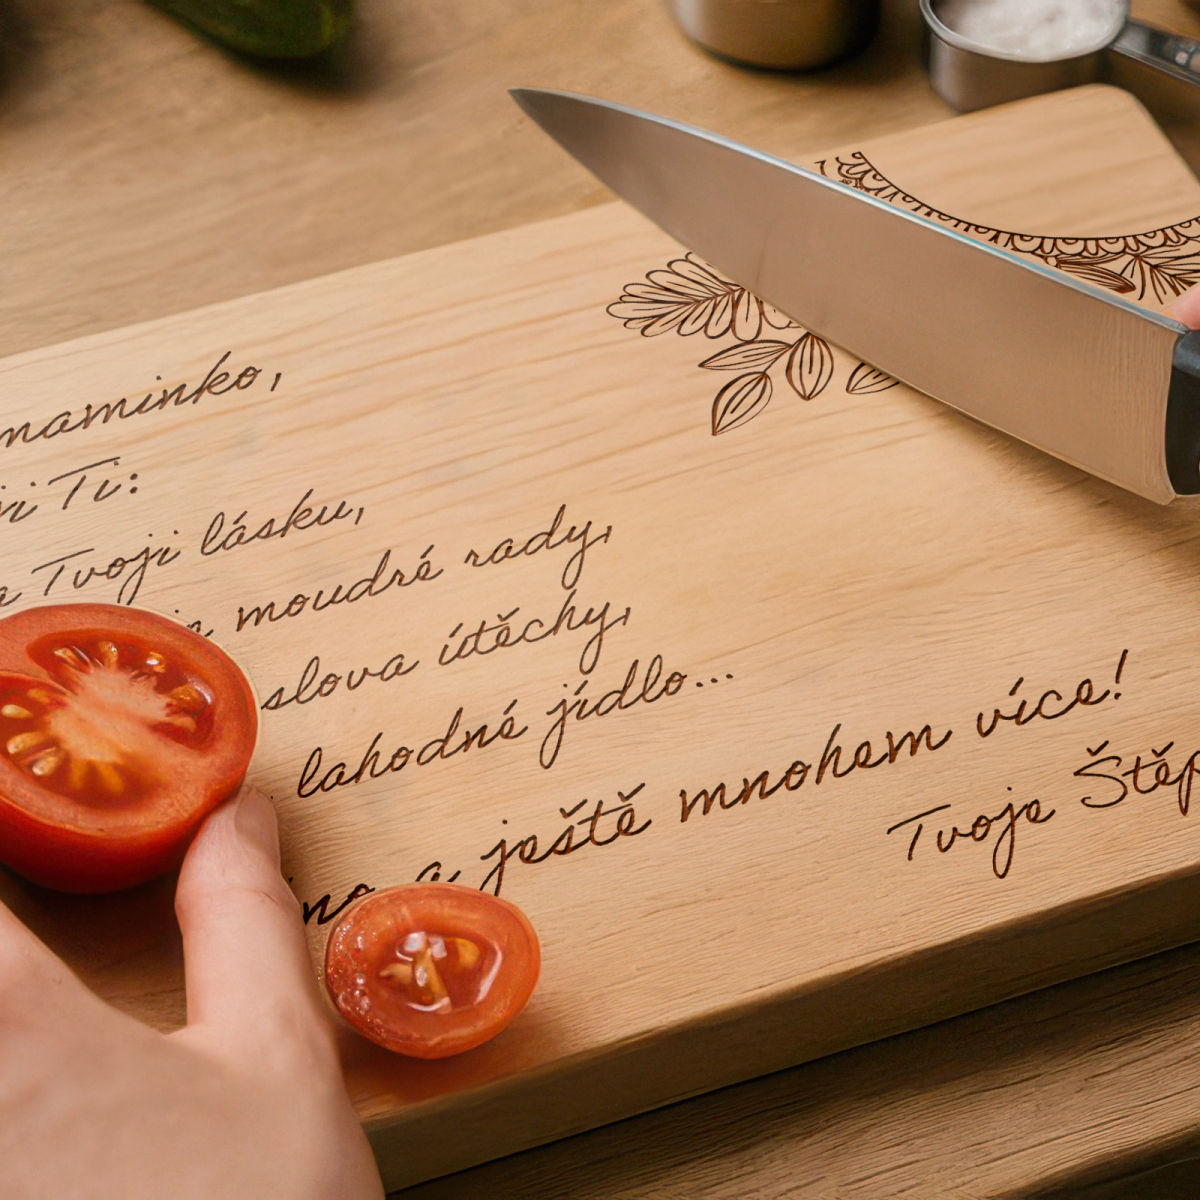 maminko,
Ti:
Tvoji lásku,
moudré rady,
slova útěchy,
lahodné jídlo...
a ještě mnohem více!
Tvoje